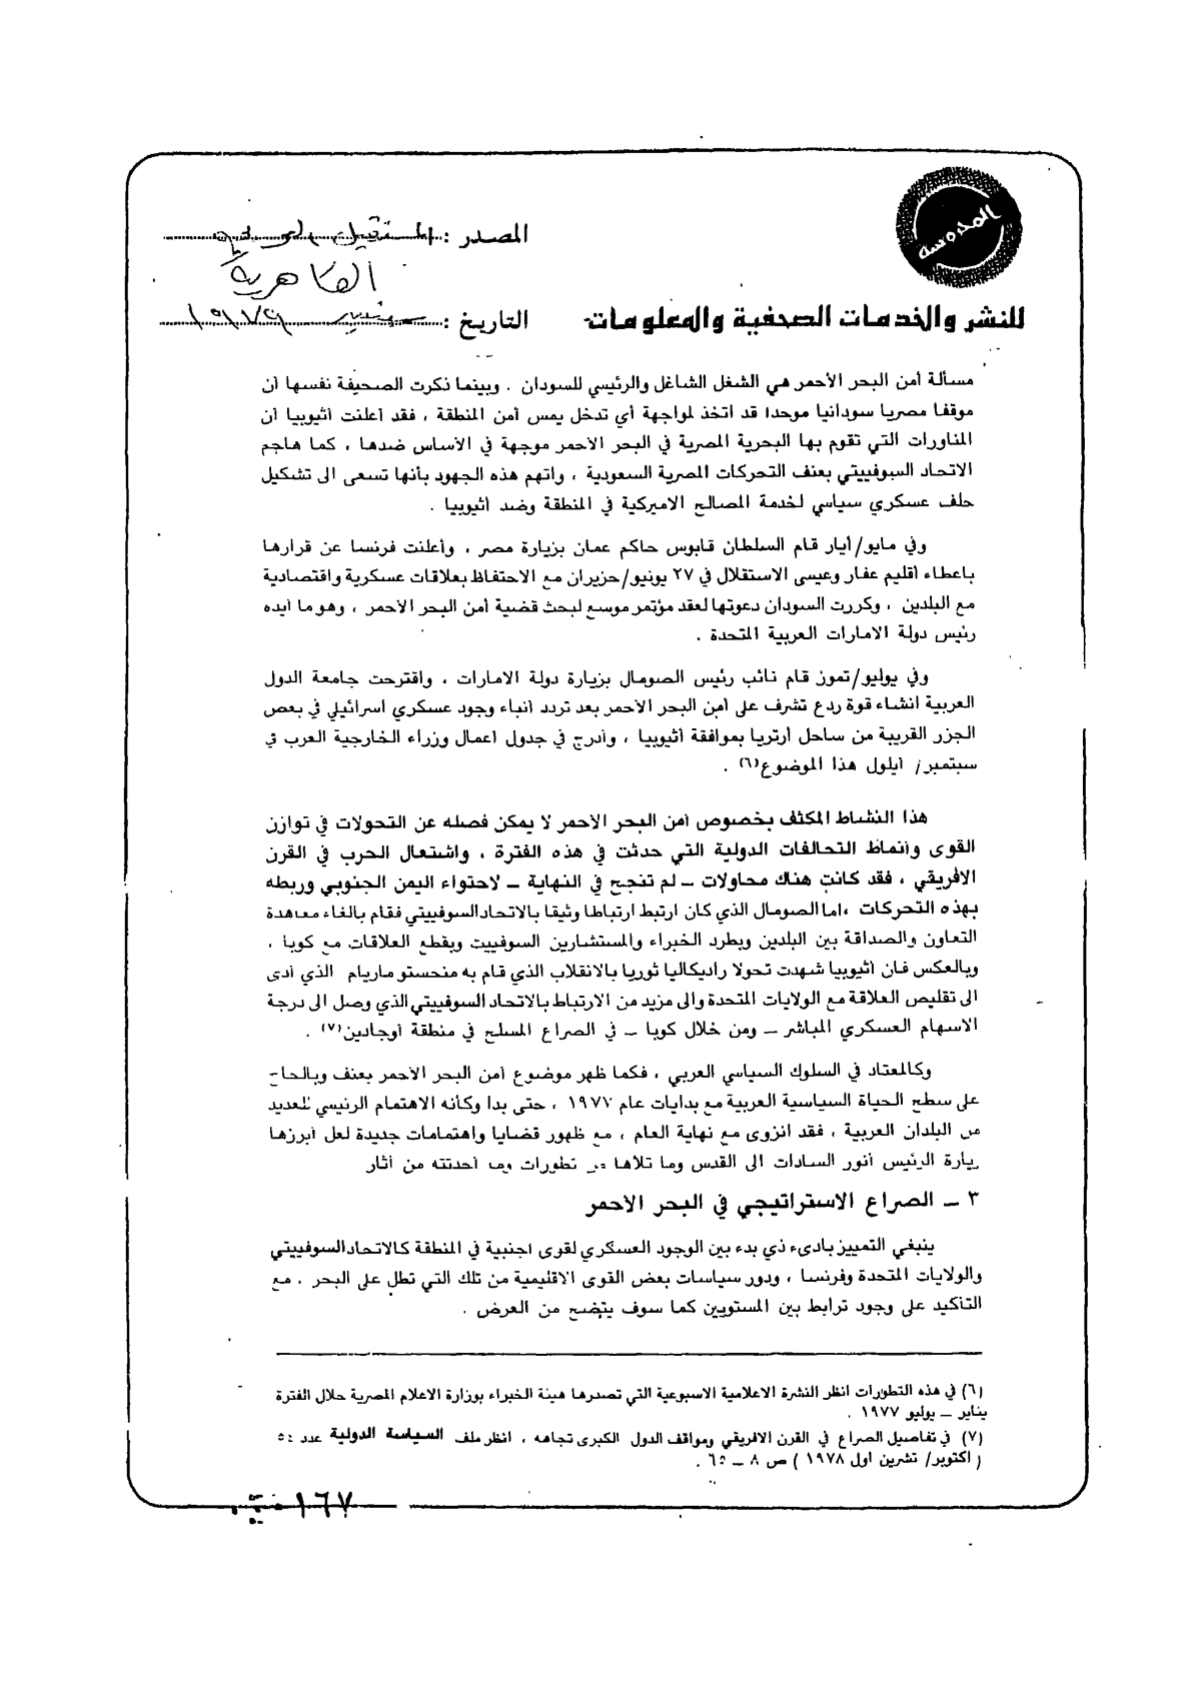 المحروسة
المصدر : المستقبل العربي
القاهرية
للنشر والخدمات الصحفية والمعلومات
التاريخ : سبتمبر ١٩٧٩
مسألة أمن البحر الأحمر هي الشغل الشاغل والرئيسي للسودان . وبينما ذكرت الصحيفة نفسها أن
موقفا مصريا سودانيا موحدا قد اتخذ لمواجهة أي تدخل يمس أمن المنطقة ، فقد أعلنت أثيوبيا أن
المناورات التي تقوم بها البحرية المصرية في البحر الأحمر موجهة في الأساس ضدها ، كما هاجم
الاتحاد السوفييتي بعنف التحركات المصرية السعودية ، واتهم هذه الجهود بأنها تسعى الى تشكيل
حلف عسكري سياسي لخدمة المصالح الاميركية في المنطقة وضد أثيوبيا .
وفي مايو/أيار قام السلطان قابوس حاكم عمان بزيارة مصر ، وأعلنت فرنسا عن قرارها
باعطاء أقليم عفار وعيسى الاستقلال في ٢٧ يونيو/حزيران مع الاحتفاظ بعلاقات عسكرية واقتصادية
مع البلدين ، وكررت السودان دعوتها لعقد مؤتمر موسع لبحث قضية أمن البحر الأحمر ، وهو ما أيده
رئيس دولة الامارات العربية المتحدة .
وفي يوليو/تموز قام نائب رئيس الصومال بزيارة دولة الامارات ، واقترحت جامعة الدول
العربية انشاء قوة ردع تشرف على أمن البحر الأحمر بعد تردد أنباء وجود عسكري اسرائيلي في بعض
الجزر القريبة من ساحل أرتريا بموافقة أثيوبيا ، وأدرج في جدول أعمال وزراء الخارجية العرب في
سبتمبر/ أيلول هذا الموضوع(٦) .
هذا النشاط المكثف بخصوص أمن البحر الأحمر لا يمكن فصله عن التحولات في توازن
القوى وأنماط التحالفات الدولية التي حدثت في هذه الفترة ، واشتعال الحرب في القرن
الافريقي ، فقد كانت هناك محاولات – لم تنجح في النهاية – لاحتواء اليمن الجنوبي وربطه
بهذه التحركات ،اما الصومال الذي كان ارتبط ارتباطا وثيقا بالاتحاد السوفييتي فقام بالغاء معاهدة
التعاون والصداقة بين البلدين وبطرد الخبراء والمستشارين السوفييت وبقطع العلاقات مع كوبا ،
وبالعكس فان أثيوبيا شهدت تحولا راديكاليا ثوريا بالانقلاب الذي قام به منجستو ماريام الذي أدى
الى تقليص العلاقة مع الولايات المتحدة والى مزيد من الارتباط بالاتحاد السوفييتي الذي وصل الى درجة
الاسهام العسكري المباشر – ومن خلال كوبا – في الصراع المسلح في منطقة أوجادين(٧) .
وكالمعتاد في السلوك السياسي العربي ، فكما ظهر موضوع أمن البحر الأحمر بعنف وبالحاح
على سطح الحياة السياسية العربية مع بدايات عام ١٩٧٧ ، حتى بدا وكأنه الاهتمام الرئيسي للعديد
من البلدان العربية ، فقد انزوى مع نهاية العام ، مع ظهور قضايا واهتمامات جديدة لعل أبرزها
زيارة الرئيس أنور السادات الى القدس وما تلاها من تطورات وما أحدثته من آثار
٣ – الصراع الاستراتيجي في البحر الأحمر
ينبغي التمييز بادىء ذي بدء بين الوجود العسكري لقوى أجنبية في المنطقة كالاتحاد السوفييتي
والولايات المتحدة وفرنسا ، ودور سياسات بعض القوى الاقليمية من تلك التي تطل على البحر . مع
التأكيد على وجود ترابط بين المستويين كما سوف يتضح من العرض .
(٦) في هذه التطورات انظر النشرة الاعلامية الاسبوعية التي تصدرها هيئة الخبراء بوزارة الاعلام المصرية خلال الفترة
يناير – يوليو ١٩٧٧ .
(٧) في تفاصيل الصراع في القرن الافريقي ومواقف الدول الكبرى تجاهه ، انظر ملف السياسة الدولية عدد ٥٤
( أكتوبر/ تشرين أول ١٩٧٨ ) ص ٨ – ٦٥ .
١٦٧